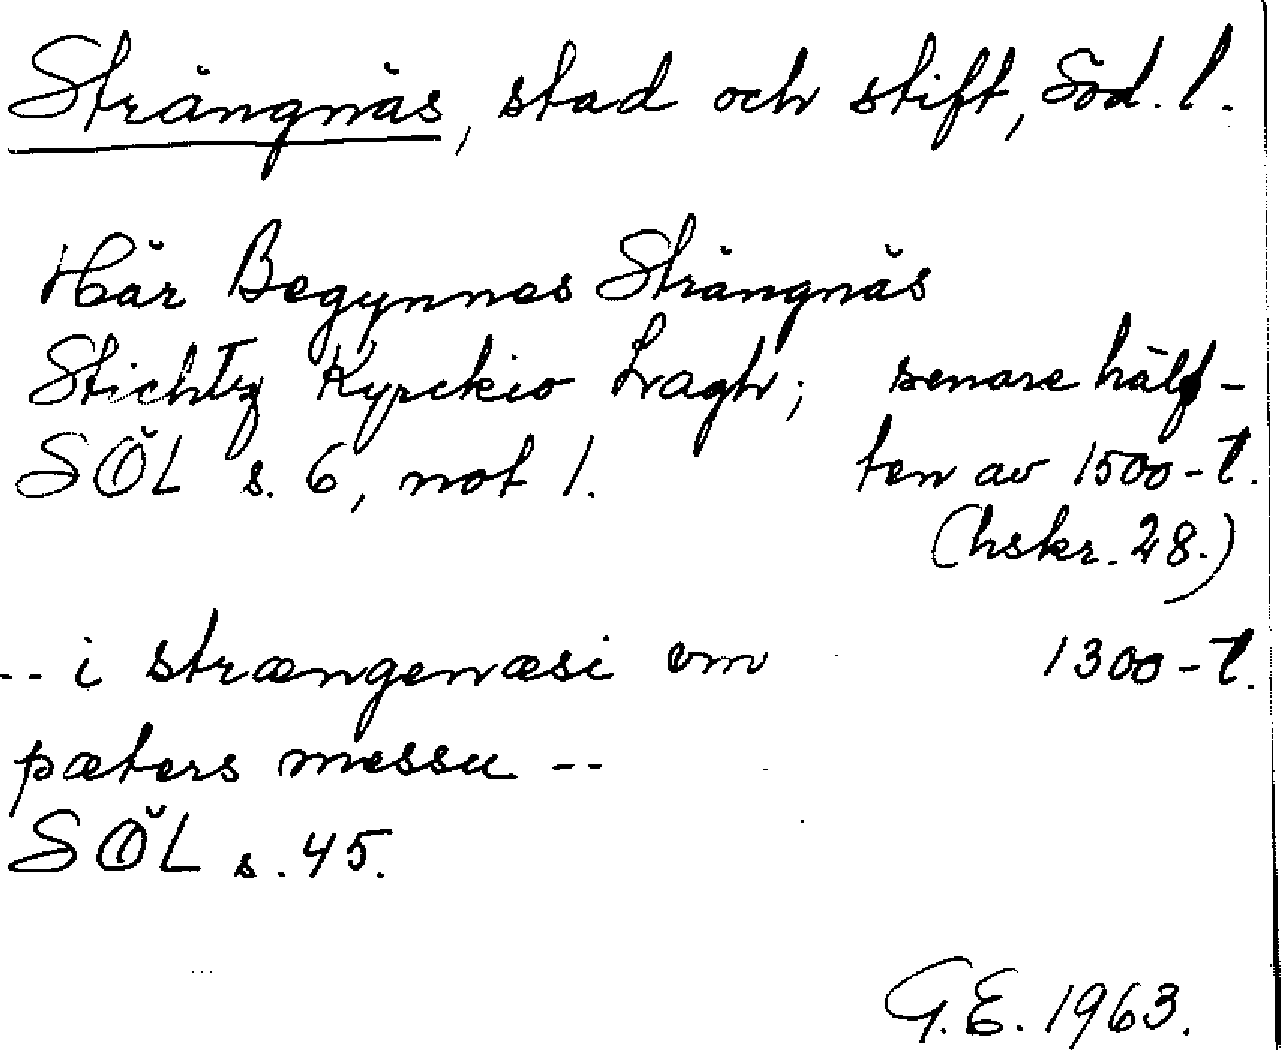 Strängnäs, stad och stift, Söd. l.
Här Begynnes Strängnäs
Stichtz Kyrckio Lragh; senare hälf-
SÖL s. 6, not 1. ten av 1500-t.
(hskr. 28.)
-- i strængenæsi om 1300-t.
pæters messu --
SÖL s. 45.
G.E. 1963.